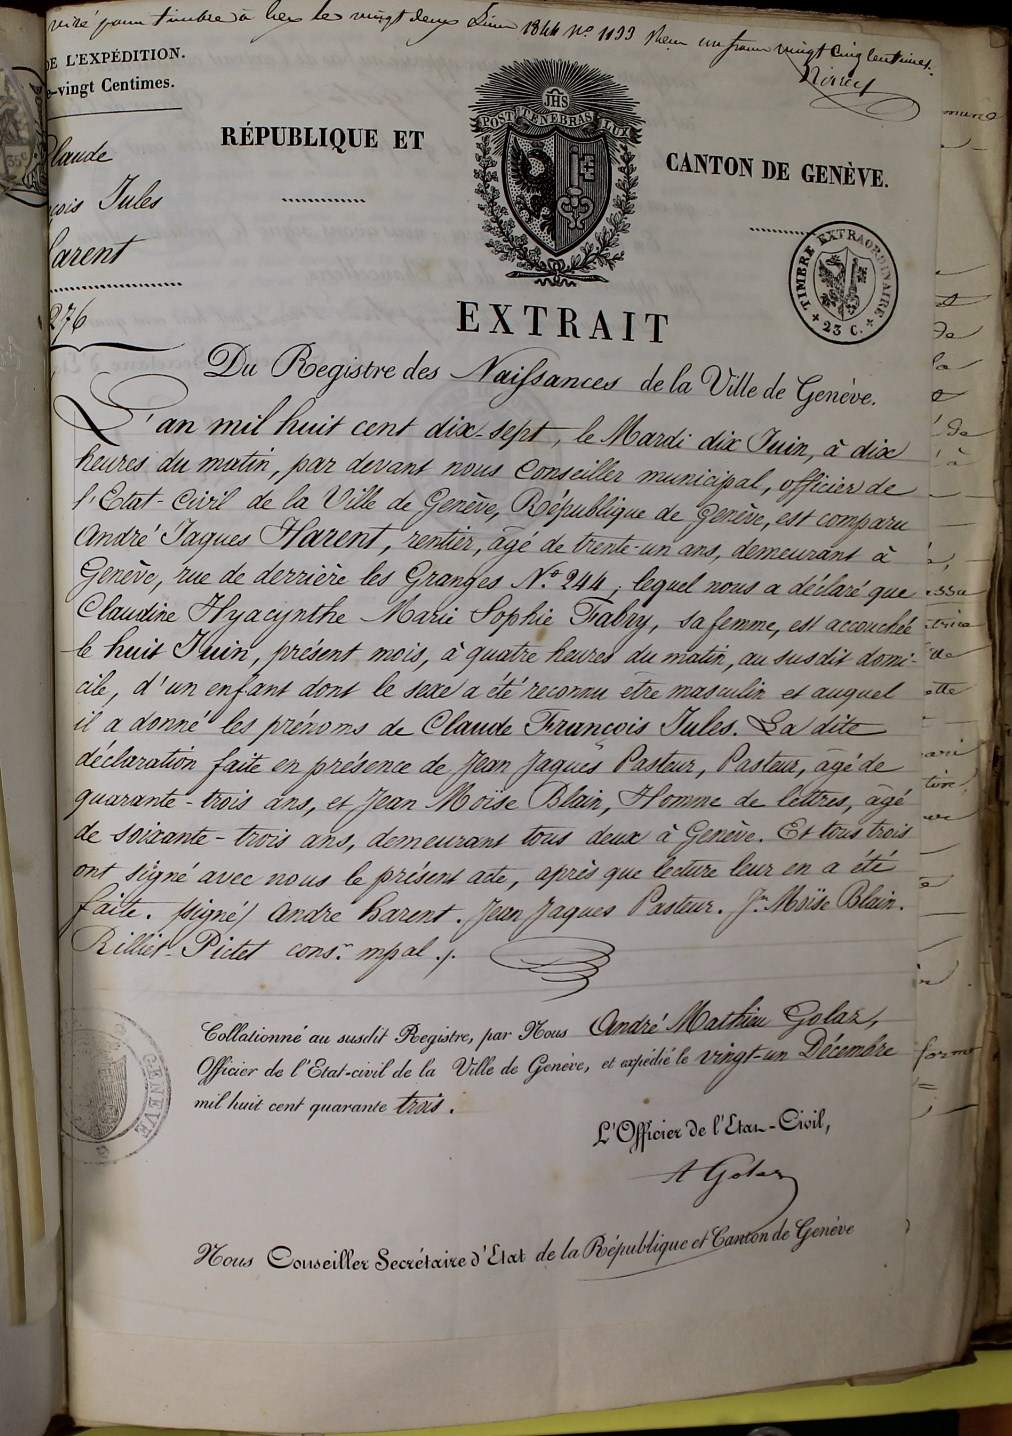 visé pour timbre à Gex le vingt deux Juin 1844 no 1133 Reçu un franc vingt cinq centimes.
DE L'EXPÉDITION.
e-vingt Centimes.
JHS
POST TENEBRAS LUX
35c
RÉPUBLIQUE ET
CANTON DE GENÈVE.
laude
çois Jules
arent
276
TIMBRE EXTRAORDINAIRE
+ 25 C. +
EXTRAIT
Du Registre des Naissances de la Ville de Genève.
L'an mil huit cent dix-sept, le Mardi dix Juin, à dix
heures du matin, par devant nous Conseiller municipal, officier de
l'Etat-Civil de la Ville de Genève, République de Genève, est comparu
André Jaques Harent, rentier, âgé de trente-un ans, demeurant à
Genève, rue de derrière les Granges No. 244, lequel nous a déclaré que
Claudine Hyacynthe Marie Sophie Fabry, sa femme, est accouchée
le huit Juin, présent mois, à quatre heures du matin, au susdit domi-
cile, d'un enfant dont le sexe a été reconnu être masculin et auquel
il a donné les prénoms de Claude François Jules. La dite
déclaration faite en présence de Jean Jaques Pasteur, Pasteur, âgé de
quarante-trois ans, et Jean Moïse Blain, Homme de lettres, âgé
de soixante-trois ans, demeurant tous deux à Genève. Et tous trois
ont signé avec nous le présent acte, après que lecture leur en a été
faite. (signé) André harent. Jean Jaques Pasteur. Jn. Moïse Blain.
Rilliet-Pictet consr. mpal ./.
Collationné au susdit Registre, par Nous André Mathieu Golaz,
Officier de l'Etat-civil de la Ville de Genève, et expédié le vingt-un Décembre
mil huit cent quarante trois.
GENEVE
L'Officier de l'Etat-Civil,
A Golaz
Nous Conseiller Secrétaire d'Etat de la République et Canton de Genève